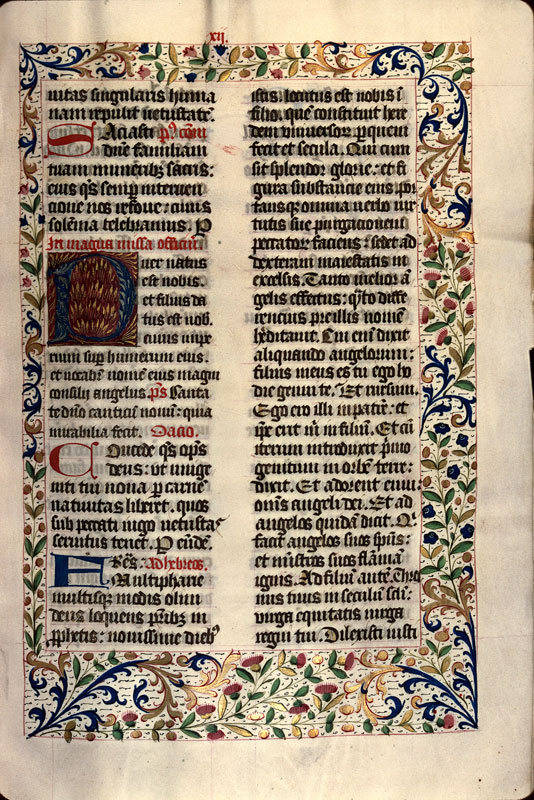 xij
uitas singularis huma
nam repulit uetustatẽ.
Saciasti p̃ cõm
dñe familiam
tuam muneribꝫ sacris:
eius q̃s semp̃ interuen
cione nos refoue: cuius
solẽnia celebramus. P
In magna missa officiũ
Puer natus
est nobis.
et filius da
tus est nob.
cuius impe
rium sup̃ humerum eius.
et uocabit̃ nomẽ eius magni
consilij angelus. p̃s Canta
te dño canticũ nouũ: quia
mirabilia fecit. Oracio.
Concede q̃s op̃s
deus: ut unige
niti tui noua p carnẽ
natiuitas liberet. quos
sub peccati iugo uetusta
seruitus tenet. P eũdẽ.
Fr̃es. Ad hebreos.
Multipharie
multisqꝫ modis olim
deus loquens p̃ribꝫ in
prophetis: nouissime diebꝰ
istis locutus est nobis ĩ
filio. quẽ constituit here
dem uniuersorũ p quem
fecit et secula. Qui cum
sit splendor glorie: et fi
gura substancie eius. por
tansqꝫ omnia uerbo uir
tutis sue purgacionem
peccatorũ faciens: sedet ad
dexteram maiestatis in
excelsis. Tanto melior ã
gelis effectus: q̃to diffe
rencius pre illis nomẽ
hẽditauit. Cui eñi dixit
aliquando angelorum:
filius meus es tu ego ho
die genui te. Et rursum.
Ego ero illi in patrẽ: et
ip̃e erit m̃ in filiũ. Et cũ
iterum introduxit p̃mo
genitum in orbẽ terre:
dixit. Et adorent eum
om̃s angeli dei. Et ad
angelos quidã dicit. Q̃
facit angelos suos sp̃us:
et mĩstros suos flãmã
ignis. Ad filiũ autẽ. Thro
nus tuus in seculũ sc̃li:
uirga equitatis uirga
regni tui. Dilexisti iusti